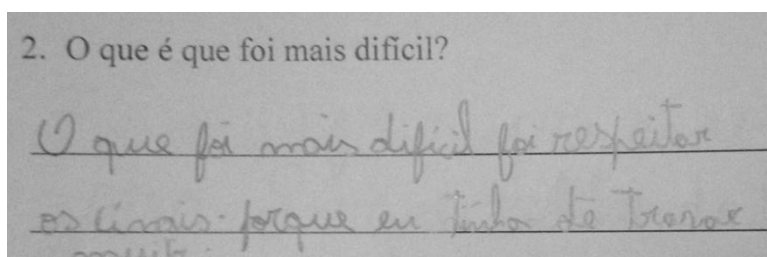 2. O que é que foi mais difícil?
O que foi mais dificil foi respeitar
os cinais. porque eu tinha de travar